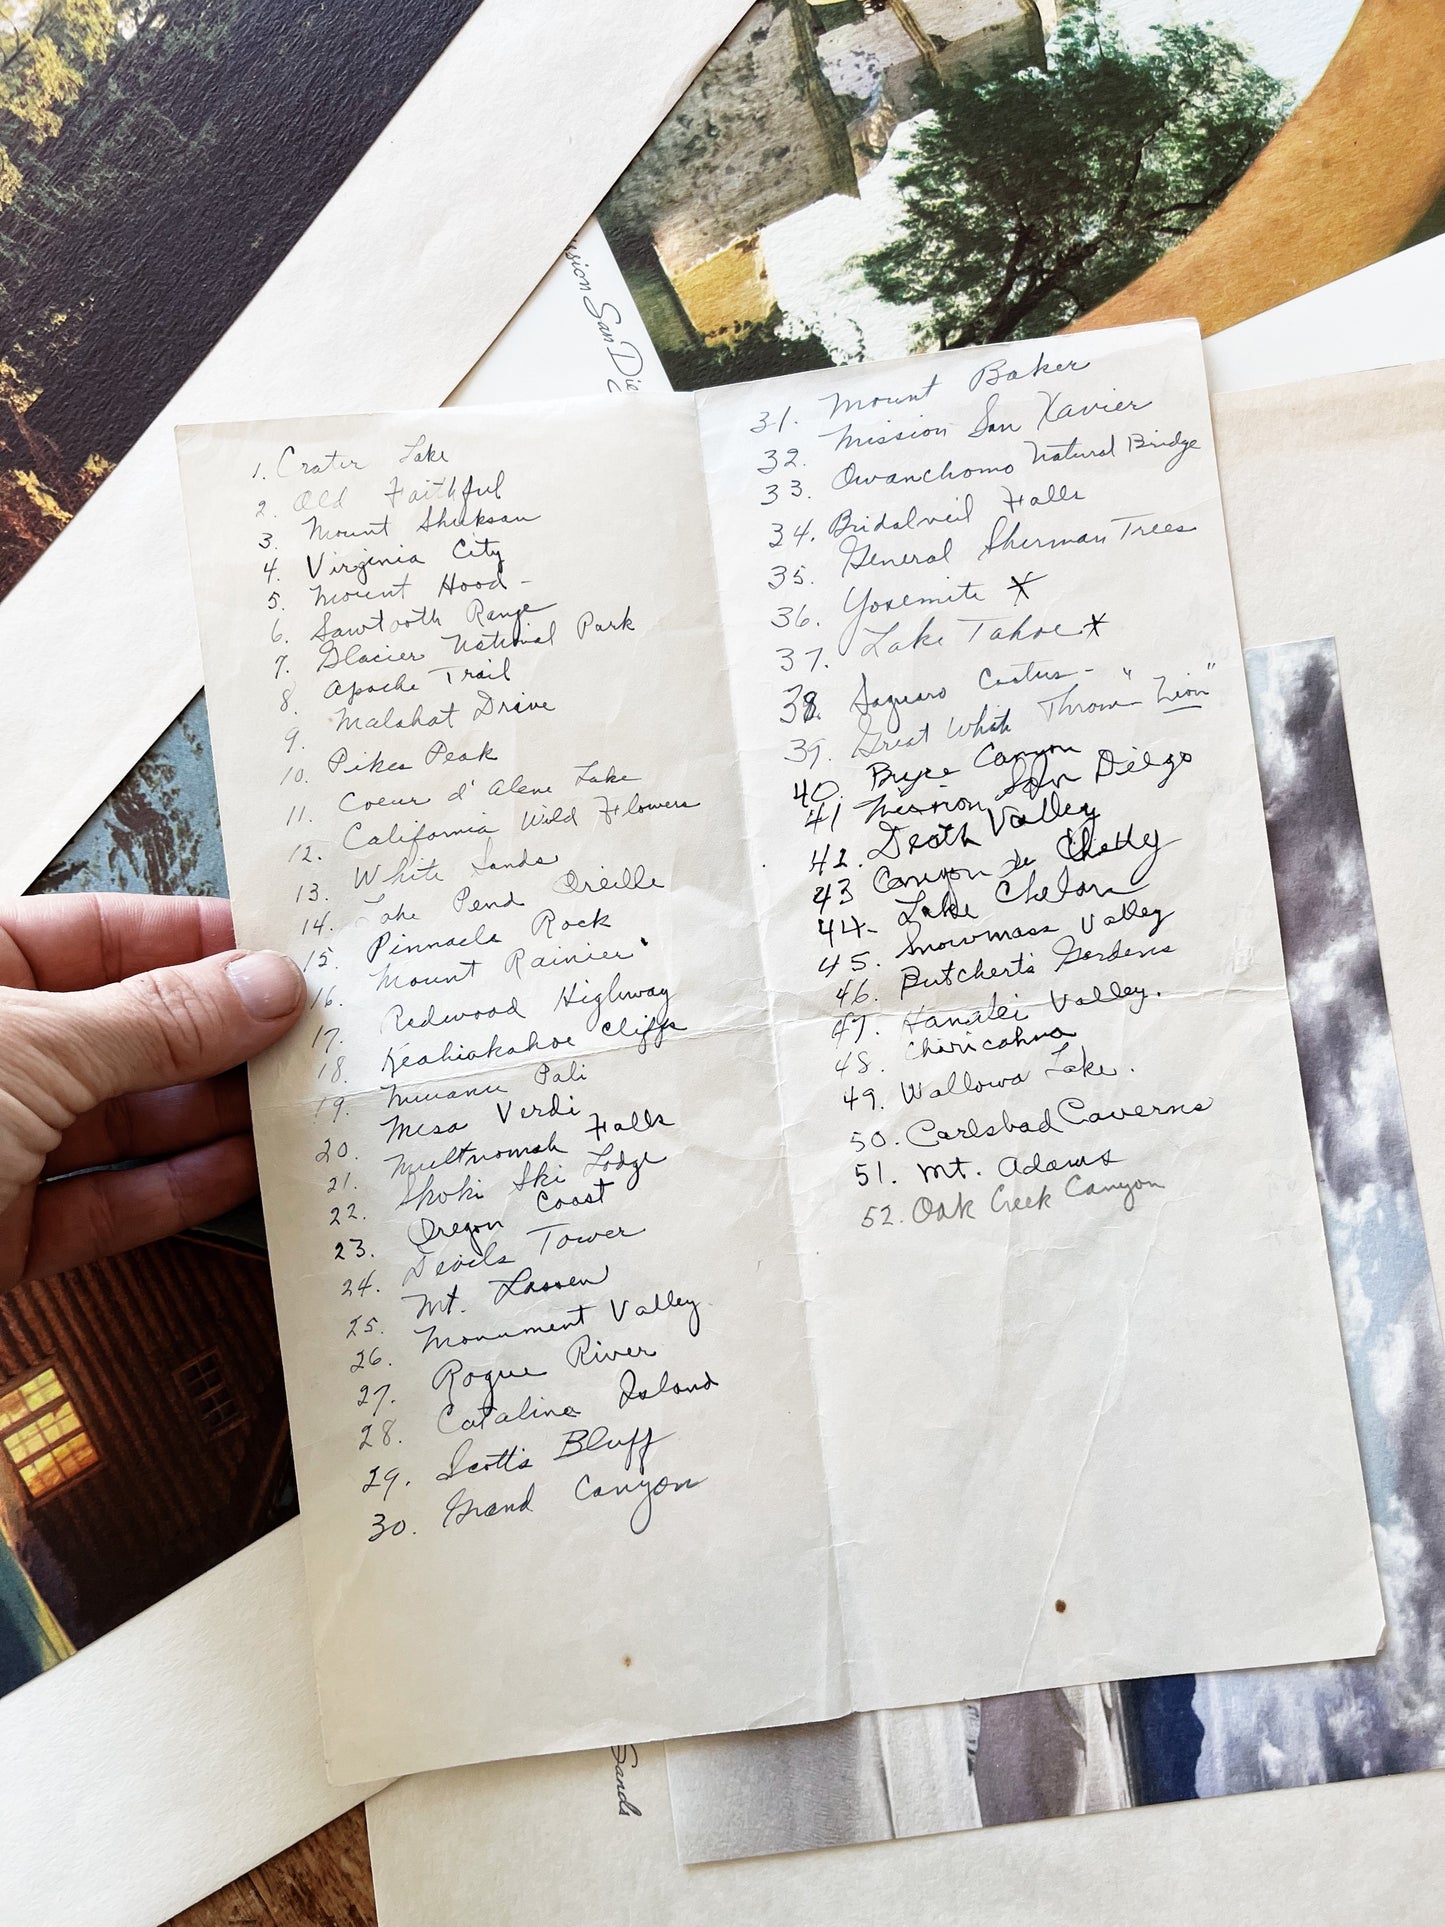 ission San Die
1. Crater Lake
2. Old Faithful
3. Mount Shuksan
4. Virginia City
5. Mount Hood -
6. Sawtooth Range
7. Glacier National Park
8. Apache Trail
9. Malahat Drive
10. Pikes Peak
11. Coeur d'Alene Lake
12. California Wild Flowers
13. White Sands
14. Lake Pend Oreille
15. Pinnacle Rock
16. Mount Rainier
17. Redwood Highway
18. Keahiakahoe Cliffs
19. Nuuanu Pali
20. Mesa Verdi
21. Multnomah Falls
22. Skoki Ski Lodge
23. Oregon Coast
24. Devils Tower
25. Mt. Lassen
26. Monument Valley
27. Rogue River
28. Catalina Island
29. Scotts Bluff
30. Grand Canyon
31. Mount Baker
32. Mission San Xavier
33. Owanchomo Natural Bridge
34. Bridalveil Falls
35. General Sherman Trees
36. Yosemite *
37. Lake Tahoe *
38. Saguaro Cactus -
39. Great White Throne - "Zion"
40. Bryce Canyon
41 Mission San Diego
42. Death Valley
43 Canyon de Chelly
44- Lake Chelan
45. Snowmass Valley
46. Butchert's Gardens
47. Hanalei Valley.
48. Chiricahua
49. Wallowa Lake.
50. Carlsbad Caverns
51. Mt. Adams
52. Oak Creek Canyon
Sands